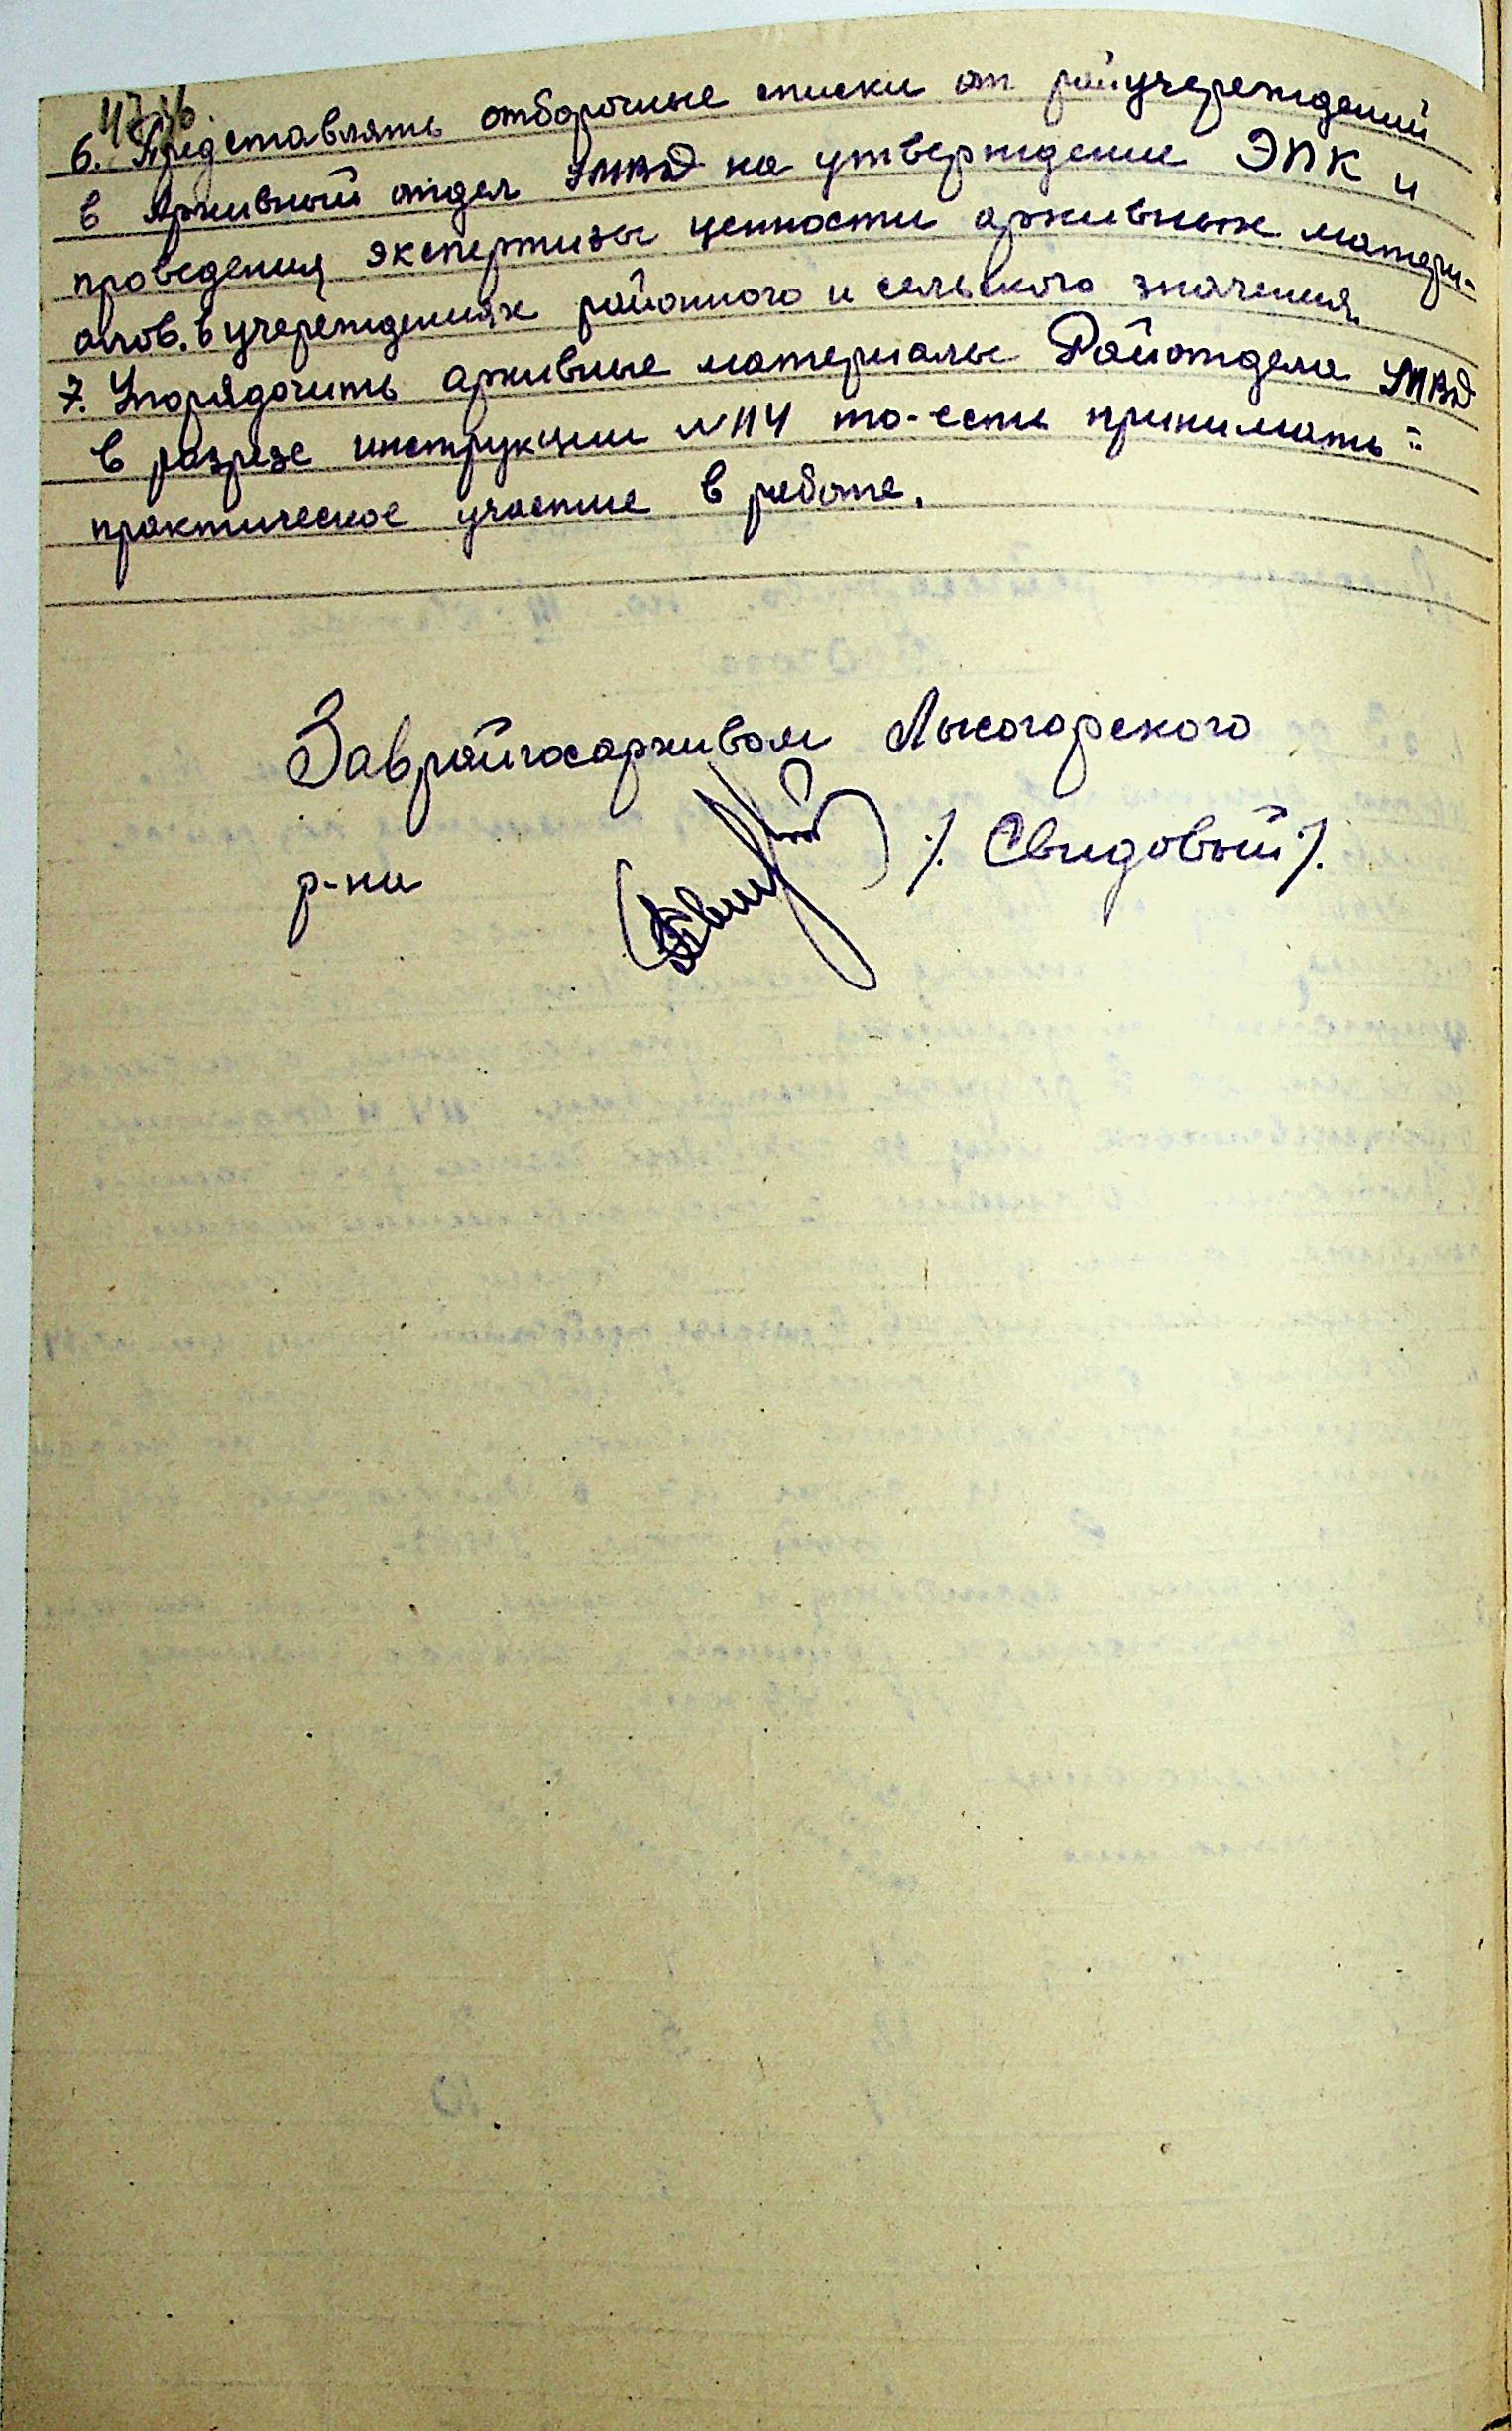 6. Представлять отборочные списки от райучереждений
в Архивный отдел УМВД на утверждение ЭПК и
проведения экспертизы ценности архивных матери-
алов. в учереждениях районного и сельского значения.
7. Упорядочить архивные материалы Райотдела УМВД
в разрезе инструкции №114 то-есть принимать =
практическое участие в работе.
Заврайгосархивом Лысогорского
р-на ./. Свидовый ./.